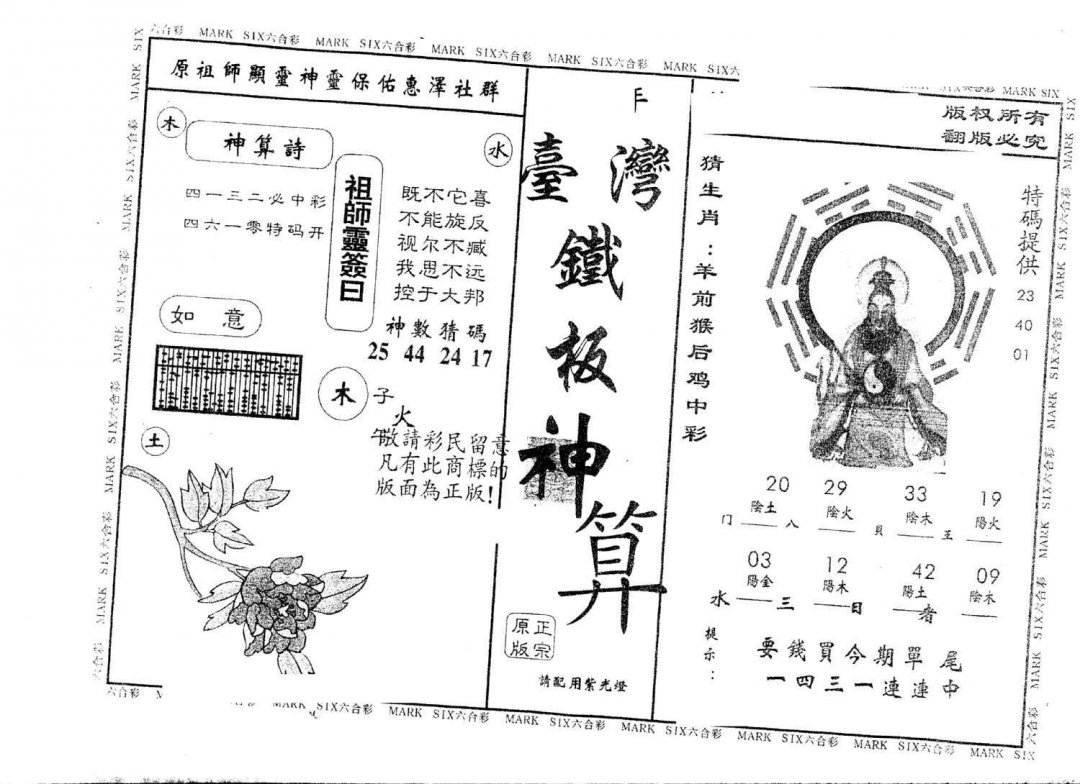 MARK SIX六合彩 MARK SIX六合彩 MARK SIX六合彩 MARK SIX六合彩 MARK SIX
原祖師顯靈神靈保佑惠澤社群
木
神算詩
水
四一三二必中彩
四六一零特码开
祖師靈簽曰
既不它喜
不能旋反
视尔不臧
我思不远
控于大邦
神數猜碼
25 44 24 17
如意
木
子
火
午敬請彩民留意
凡有此商標的
版面為正版!
土
臺灣
鐵
板
神
算
正宗
原版
請配用紫光燈
版权所有
翻版必究
猜生肖:羊前猴后鸡中彩
特碼提供
23
40
01
20 29 33 19
陰土 陰火 陰木 陽火
门 八 貝 王
03 12 42 09
陽金 陽木 陽土 陰木
水 三 日 者
提示:
要錢買今期單尾
一四三一連連中
MARK SIX六合彩 MARK SIX六合彩 MARK SIX六合彩 MARK SIX六合彩 MARK SIX六合彩 MARK SIX